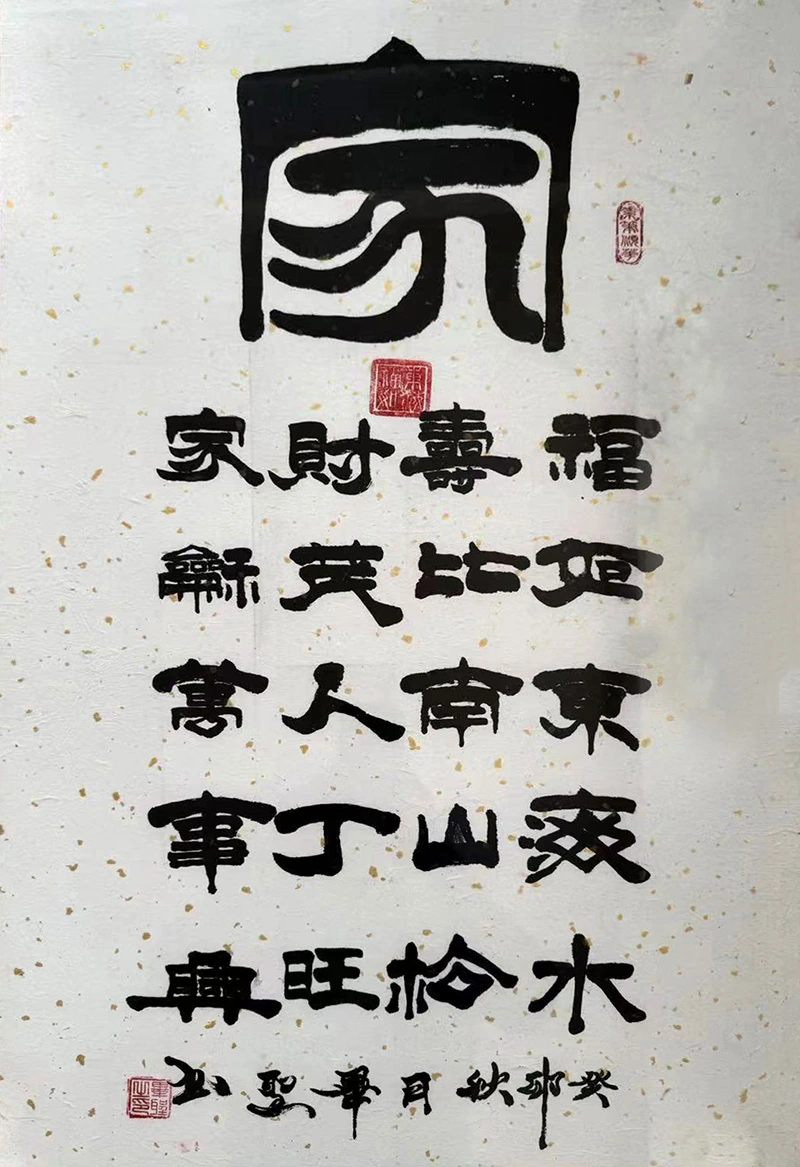 家
福如東海水
壽比南山松
財茂人丁旺
家龢萬事興
癸卯秋月華聖书